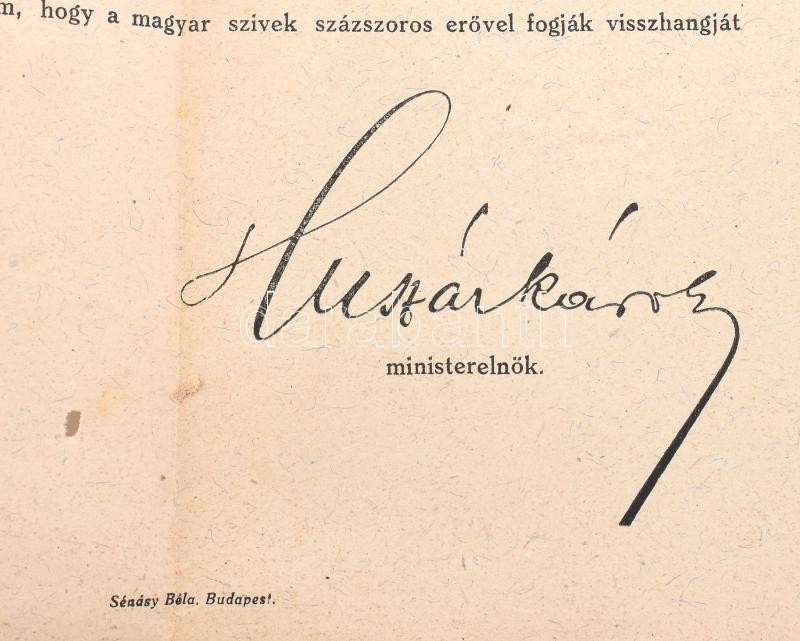 m, hogy a magyar szivek százszoros erővel fogják visszhangját
Huszár Károly
darabanth
ministerelnök.
Sénásy Béla. Budapest.